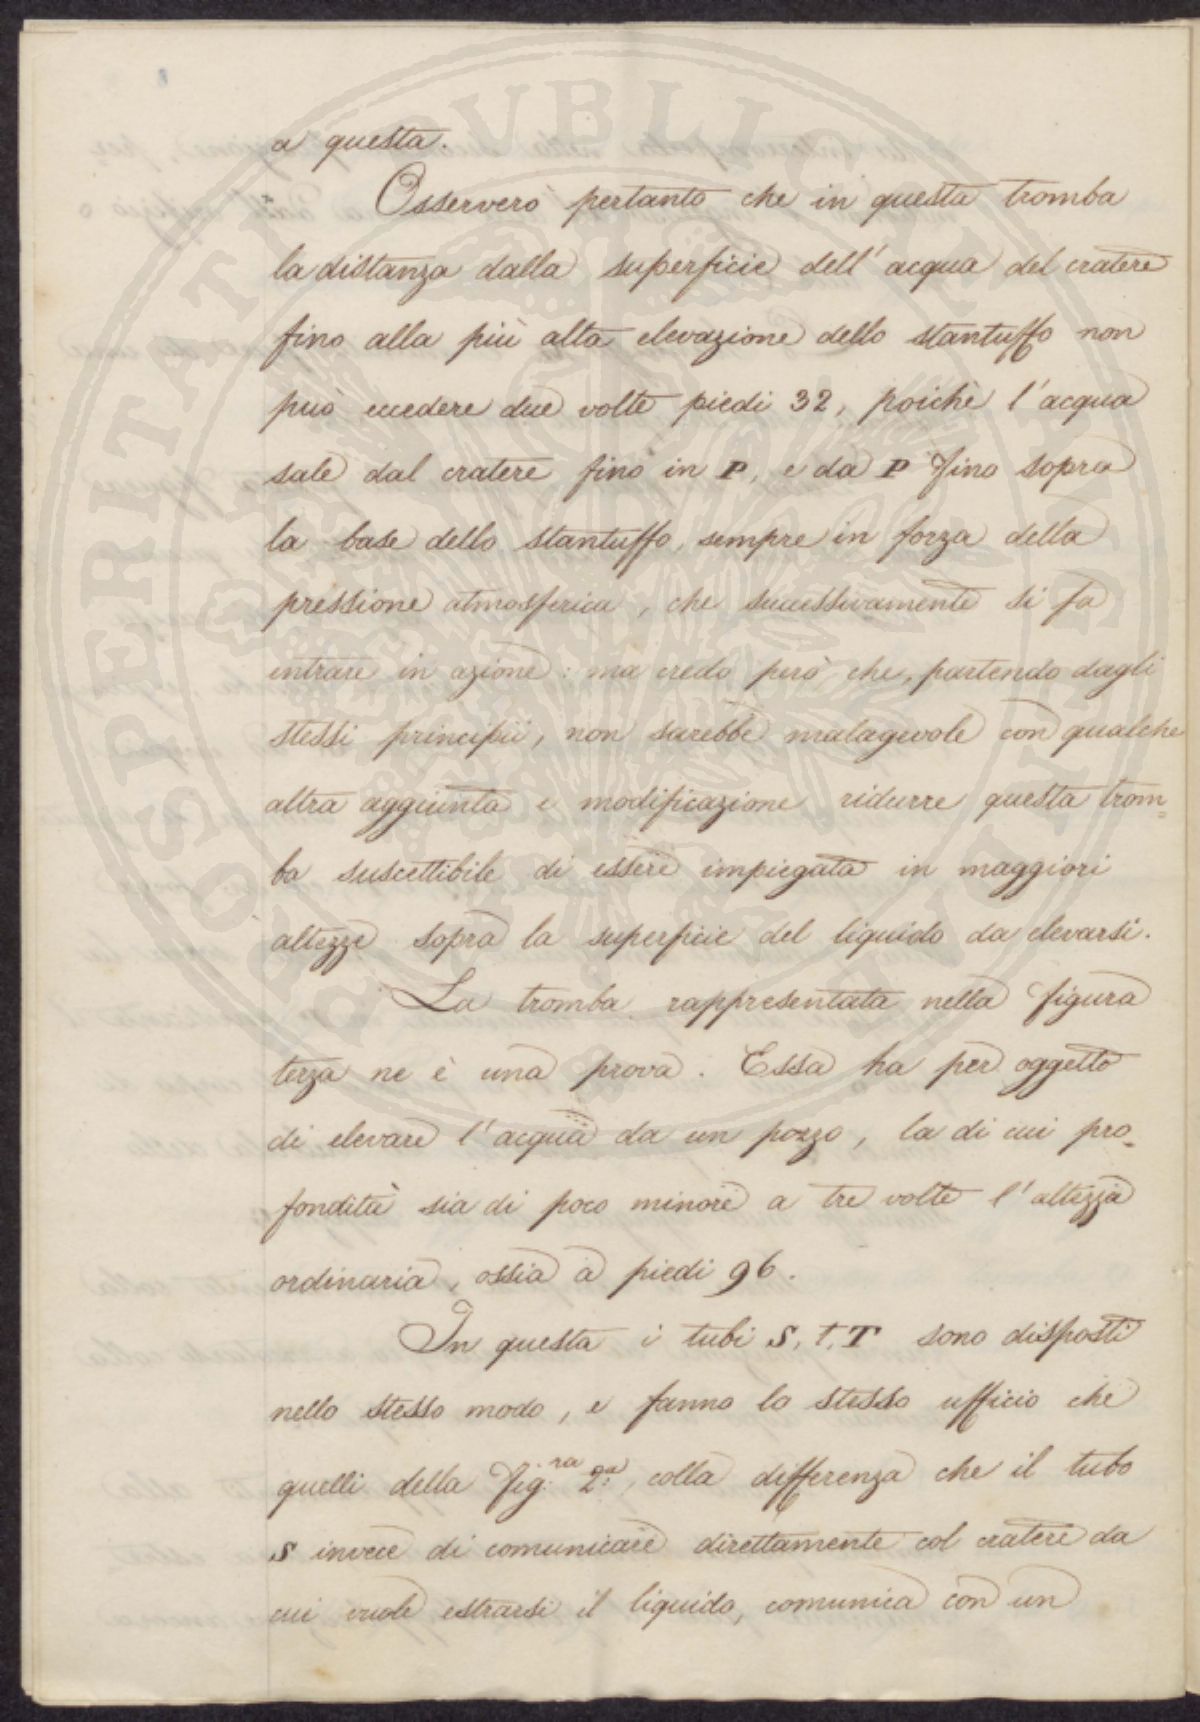 a questa.
Osserverò pertanto che in questa tromba
la distanza dalla superficie dell'acqua del cratere
fino alla più alta elevazione dello stantuffo non
può eccedere due volte piedi 32, poichè l'acqua
sale dal cratere fino in P, e da P fino sopra
la base dello stantuffo, sempre in forza della
pressione atmosferica, che successivamente si fa
entrare in azione: ma credo però che, partendo dagli
stessi principii, non sarebbe malagevole con qualche
altra aggiunta e modificazione ridurre questa trom-
ba suscettibile di essere impiegata in maggiori
altezze sopra la superficie del liquido da elevarsi.
La tromba rappresentata nella figura
terza ne è una prova. Essa ha per oggetto
di elevare l'acqua da un pozzo, la di cui pro-
fondità sia di poco minore a tre volte l'altezza
ordinaria, ossia a piedi 96.
In questa i tubi S, t, T sono disposti
nello stesso modo, e fanno lo stesso ufficio che
quelli della Fig.ra 2.a, colla differenza che il tubo
S invece di comunicare direttamente col cratere da
cui vuole estrarsi il liquido, comunica con un
PROSPERITATI PUBLICAE AUGENDAE